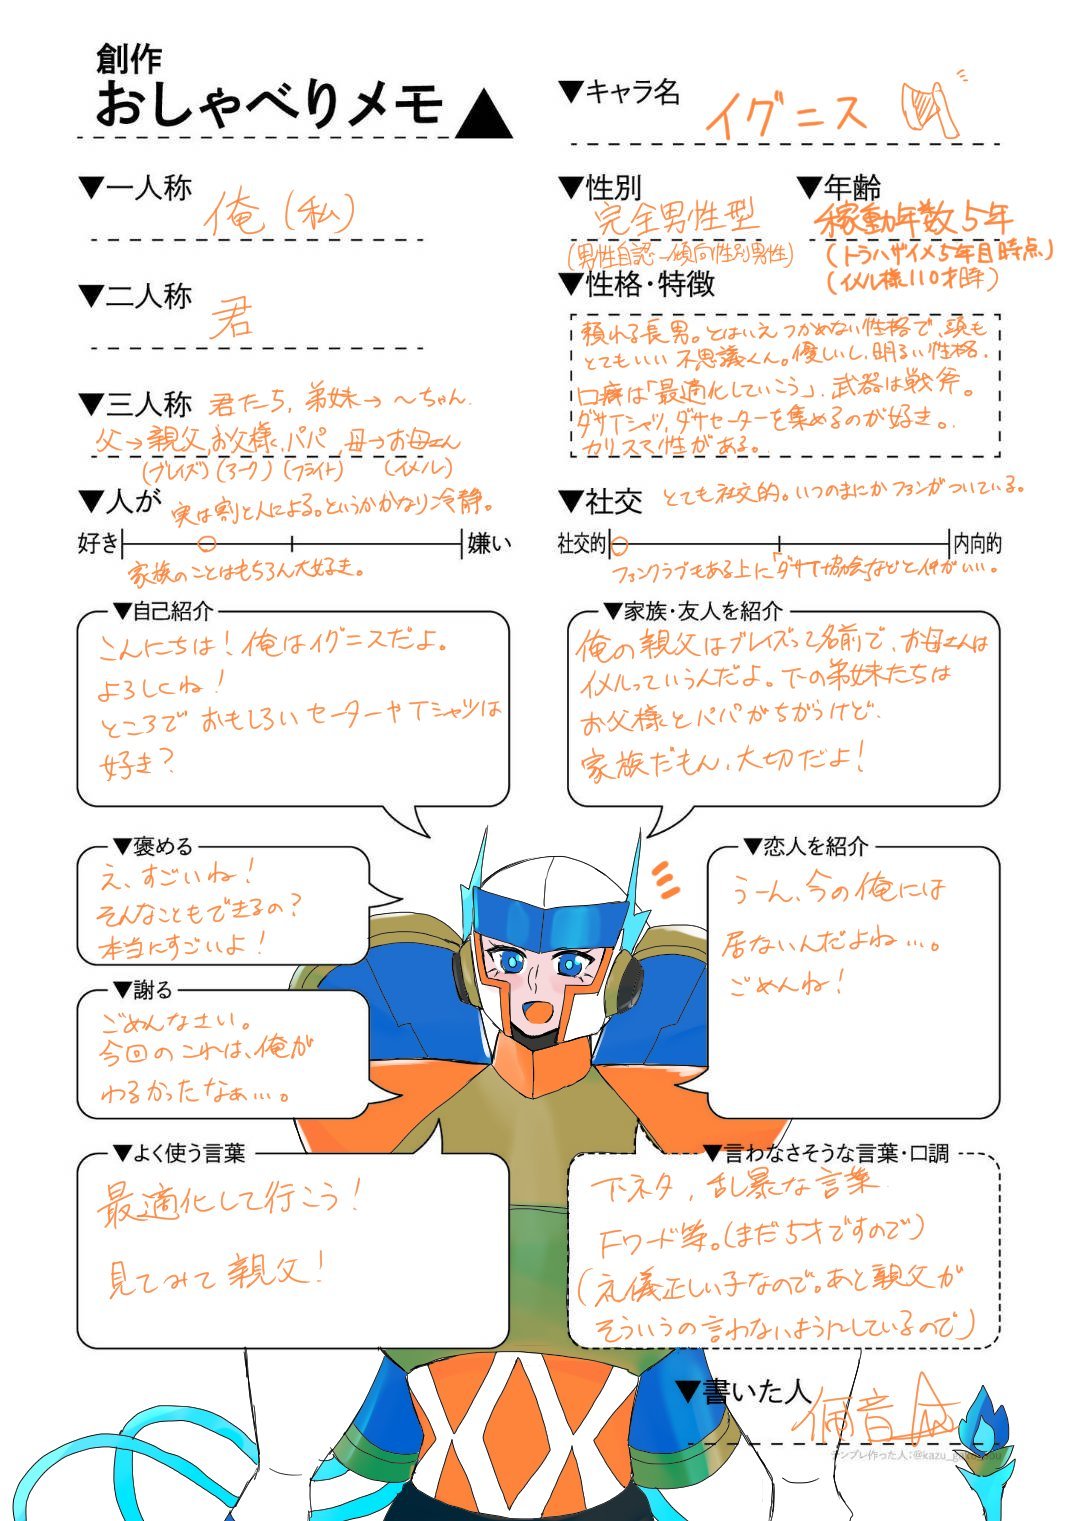 創作
おしゃべりメモ
▼キャラ名
イグニス
▼一人称
俺(私)
▼性別
完全男性型
(男性自認→傾向性別男性)
▼年齢
稼動年数5年
(トラハザイメ5年目時点)
(イメル様110才時)
▼二人称
君
▼性格・特徴
頼れる長男。とはいえつかめない性格で、頭も
とてもいい不思議くん。優しいし、明るい性格。
口癖は「最適化していこう」、武器は戦斧。
ダサTシャツ、ダサセーターを集めるのが好き。
カリスマ性がある。
▼三人称
君たち、弟妹→〜ちゃん
父→親父、お父様、パパ、母→お母さん
(ブレイズ)(アーク)(フライト)(イメル)
▼人が
実は割と人による。というかかなり冷静。
好き
嫌い
家族のことはもちろん大好き。
▼社交
とても社交的。いつのまにかファンがついている。
社交的
内向的
ファンクラブもある上に「ダサT協会」などと仲がいい。
▼自己紹介
こんにちは!俺はイグニスだよ。
よろしくね!
ところでおもしろいセーターやTシャツは
好き?
▼家族・友人を紹介
俺の親父はブレイズって名前で、お母さんは
イメルっていうんだよ。下の弟妹たちは
お父様とパパがちがうけど、
家族だもん、大切だよ!
▼褒める
え、すごいね!
そんなこともできるの?
本当にすごいよ!
▼恋人を紹介
うーん、今の俺には
居ないんだよね…。
ごめんね!
▼謝る
ごめんなさい。
今回のこれは、俺が
わるかったなぁ…。
▼よく使う言葉
最適化して行こう!
見てみて親父!
▼言わなさそうな言葉・口調
下ネタ、乱暴な言葉
Fワード等。(まだ5才ですので)
(礼儀正しい子なので。あと親父が
そういうの言わないようにしているので)
▼書いた人
佩音
テンプレ作った人:@kazu_